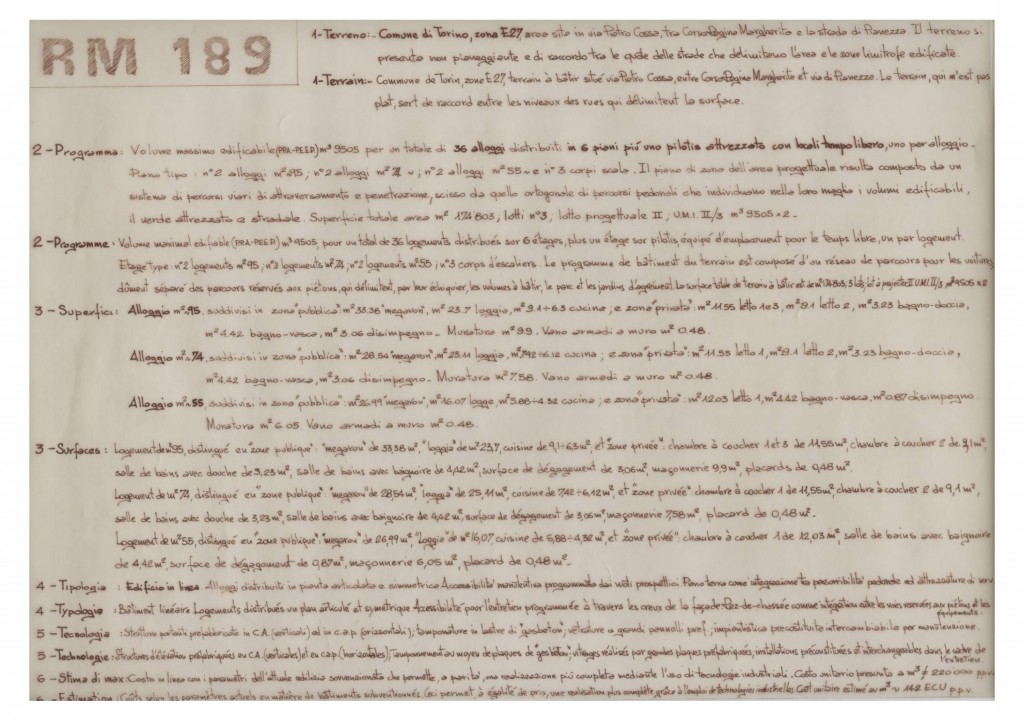 RM 189
1-Terreno:- Comune di Torino, zona E27, area sita in via Pietro Cossa, tra Corso Regina Margherita e la strada di Pianezza. Il terreno si
presenta non pianeggiante e di raccordo tra le quote delle strade che delimitano l'area e le zone limitrofe edificate.
1-Terrain:- Commune de Torin, zone E27, terrain à bâtir situé via Pietro Cossa, entre Corso Regina Margherita et via di Pianezza. Le terrain, qui n'est pas
plat, sert de raccord entre les niveaux des rues qui délimitent la surface.
2-Programma: Volume massimo edificabile (P.P.A.-P.E.E.P.) m³ 9505 per un totale di 36 alloggi distribuiti in 6 piani più uno pilotis attrezzato con locali tempo libero, uno per alloggio.
Piano tipo: n°2 alloggi m² 95; n°2 alloggi m² 74; n°2 alloggi m² 55 e n°3 corpi scala. Il piano di zona dell'area progettuale risulta composto da un
sistema di percorsi viari di attraversamento e penetrazione, scisso da quello ortogonale di percorsi pedonali che individuano nella loro maglia i volumi edificabili,
il verde attrezzato e stradale. Superficie totale area m² 174803; lotti n°3; lotto progettuale II; U.M.I. II/3 m³ 9505 x 2.
2-Programme: Volume maximal edifiable (P.P.A.-P.E.E.P.) m³ 9505, pour un total de 36 logements distribués sur 6 étages, plus un étage sur pilotis équipé d'emplacement pour le temps libre, un par logement.
Etage type: n°2 logements m² 95; n°2 logements m² 74; n°2 logements m² 55; n°3 corps d'escaliers. Le programme de bâtiment du terrain est composé d'un réseau de parcours pour les voitures
dûment séparé des parcours réservés aux piétons, qui délimitent, par leur échiquier, les volumes à bâtir, le parc et les jardins d'agrément. La surface totale de terrain à bâtir est de m² 174803; 3 lots; lot à projeter II U.M.I. II/3 m³ 9505 x 2
3-Superfici: Alloggio m² 95, suddivisi in zona "pubblica": m² 33.38 "megaron", m² 23.7 loggia, m² 9.1÷6.3 cucina; e zona "privata": m² 11.55 letto 1 e 3, m² 9.1 letto 2, m² 3.23 bagno-doccia,
m² 4.42 bagno-vasca, m² 3.06 disimpegno. Muratura m² 9.9. Vano armadi a muro m² 0.48.
Alloggio m² 74, suddivisi in zona "pubblica": m² 28.54 "megaron", m² 25.11 loggia, m² 7.42÷6.12 cucina; e zona "privata": m² 11.55 letto 1, m² 9.1 letto 2, m² 3.23 bagno-doccia,
m² 4.42 bagno-vasca, m² 3.06 disimpegno. Muratura m² 7.58. Vano armadi a muro m² 0.48.
Alloggio m² 55, suddivisi in zona "pubblica": m² 26.99 "megaron", m² 16.07 logge, m² 5.88÷4.32 cucina; e zona "privata": m² 12.03 letto 1, m² 4.42 bagno-vasca, m² 0.87 disimpegno.
Muratura m² 6.05. Vano armadi a muro m² 0.48.
3-Surfaces: Logement de m² 95, distingué en "zone publique": "megaron" de 33,38 m², "loggia" de m² 23,7, cuisine de 9,1÷6,3 m², et "zone privée": chambre à coucher 1 et 3 de 11,55 m², chambre à coucher 2 de 9,1 m²,
salle de bains avec douche de 3,23 m², salle de bains avec baignoire de 4,42 m², surface de dégagement de 3,06 m², maçonnerie 9,9 m², placards de 0,48 m².
Logement de m² 74, distingué en "zone publique": "megaron" de 28,54 m², "loggia" de 25,11 m², cuisine de 7,42÷6,12 m², et "zone privée": chambre à coucher 1 de 11,55 m², chambre à coucher 2 de 9,1 m²,
salle de bains avec douche de 3,23 m², salle de bains avec baignoire de 4,42 m², surface de dégagement de 3,06 m², maçonnerie 7,58 m², placard de 0,48 m².
Logement de m² 55, distingué en "zone publique": "megaron" de 26,99 m², "loggia" de m² 16,07, cuisine de 5,88÷4,32 m², et "zone privée": chambre à coucher 1 de 12,03 m², salle de bains avec baignoire
de 4,42 m², surface de dégagement de 0,87 m², maçonnerie 6,05 m², placard de 0,48 m².
4-Tipologia: Edificio in linea. Alloggi distribuiti in pianta articolata e simmetrica. Accessibilità manutentiva programmata dai vuoti prospettici. Piano terra come integrazione tra percorribilità pedonale ed attrezzature di serv.
4-Typologie: Bâtiment linéaire. Logements distribués un plan articulé et symétrique. Accessibilité pour l'entretien programmée à travers les creux de la façade. Rez-de-chaussée comme intégration entre les voies réservées aux piétons et les
équipements.
5-Tecnologia: Strutture portanti prefabbricate in C.A. (verticali) ed in c.a.p. (orizzontali); tamponature in lastre di "gasbeton"; vetrature a grandi pannelli pref.; impiantistica precostituita intercambiabile per manutenzione.
5-Technologie: Structures d'élévation préfabriquées en C.A. (verticales) et en c.a.p. (horizontales); tamponnement au moyen de plaques de "gasbéton"; vitrages réalisés par grandes plaques préfabriquées, installations préconstituées et interchangeables dans le cadre de
l'entretien.
6-Stima di max: Costo in linea con i parametri dell'attuale edilizia sovvenzionata che permette, a parità, una realizzazione più completa mediante l'uso di tecnologie industriali. Costo unitario presunto a m³ £ 220 000 p.p.v.
6-Estimation: Coûts selon les paramètres actuels en matière de bâtiments subventionnés. Ceci permet à égalité de prix, une réalisation plus complète grâce à l'emploi de technologies industrielles. Coût unitaire estimé au m³ ~ 142 ECU p.p.v.